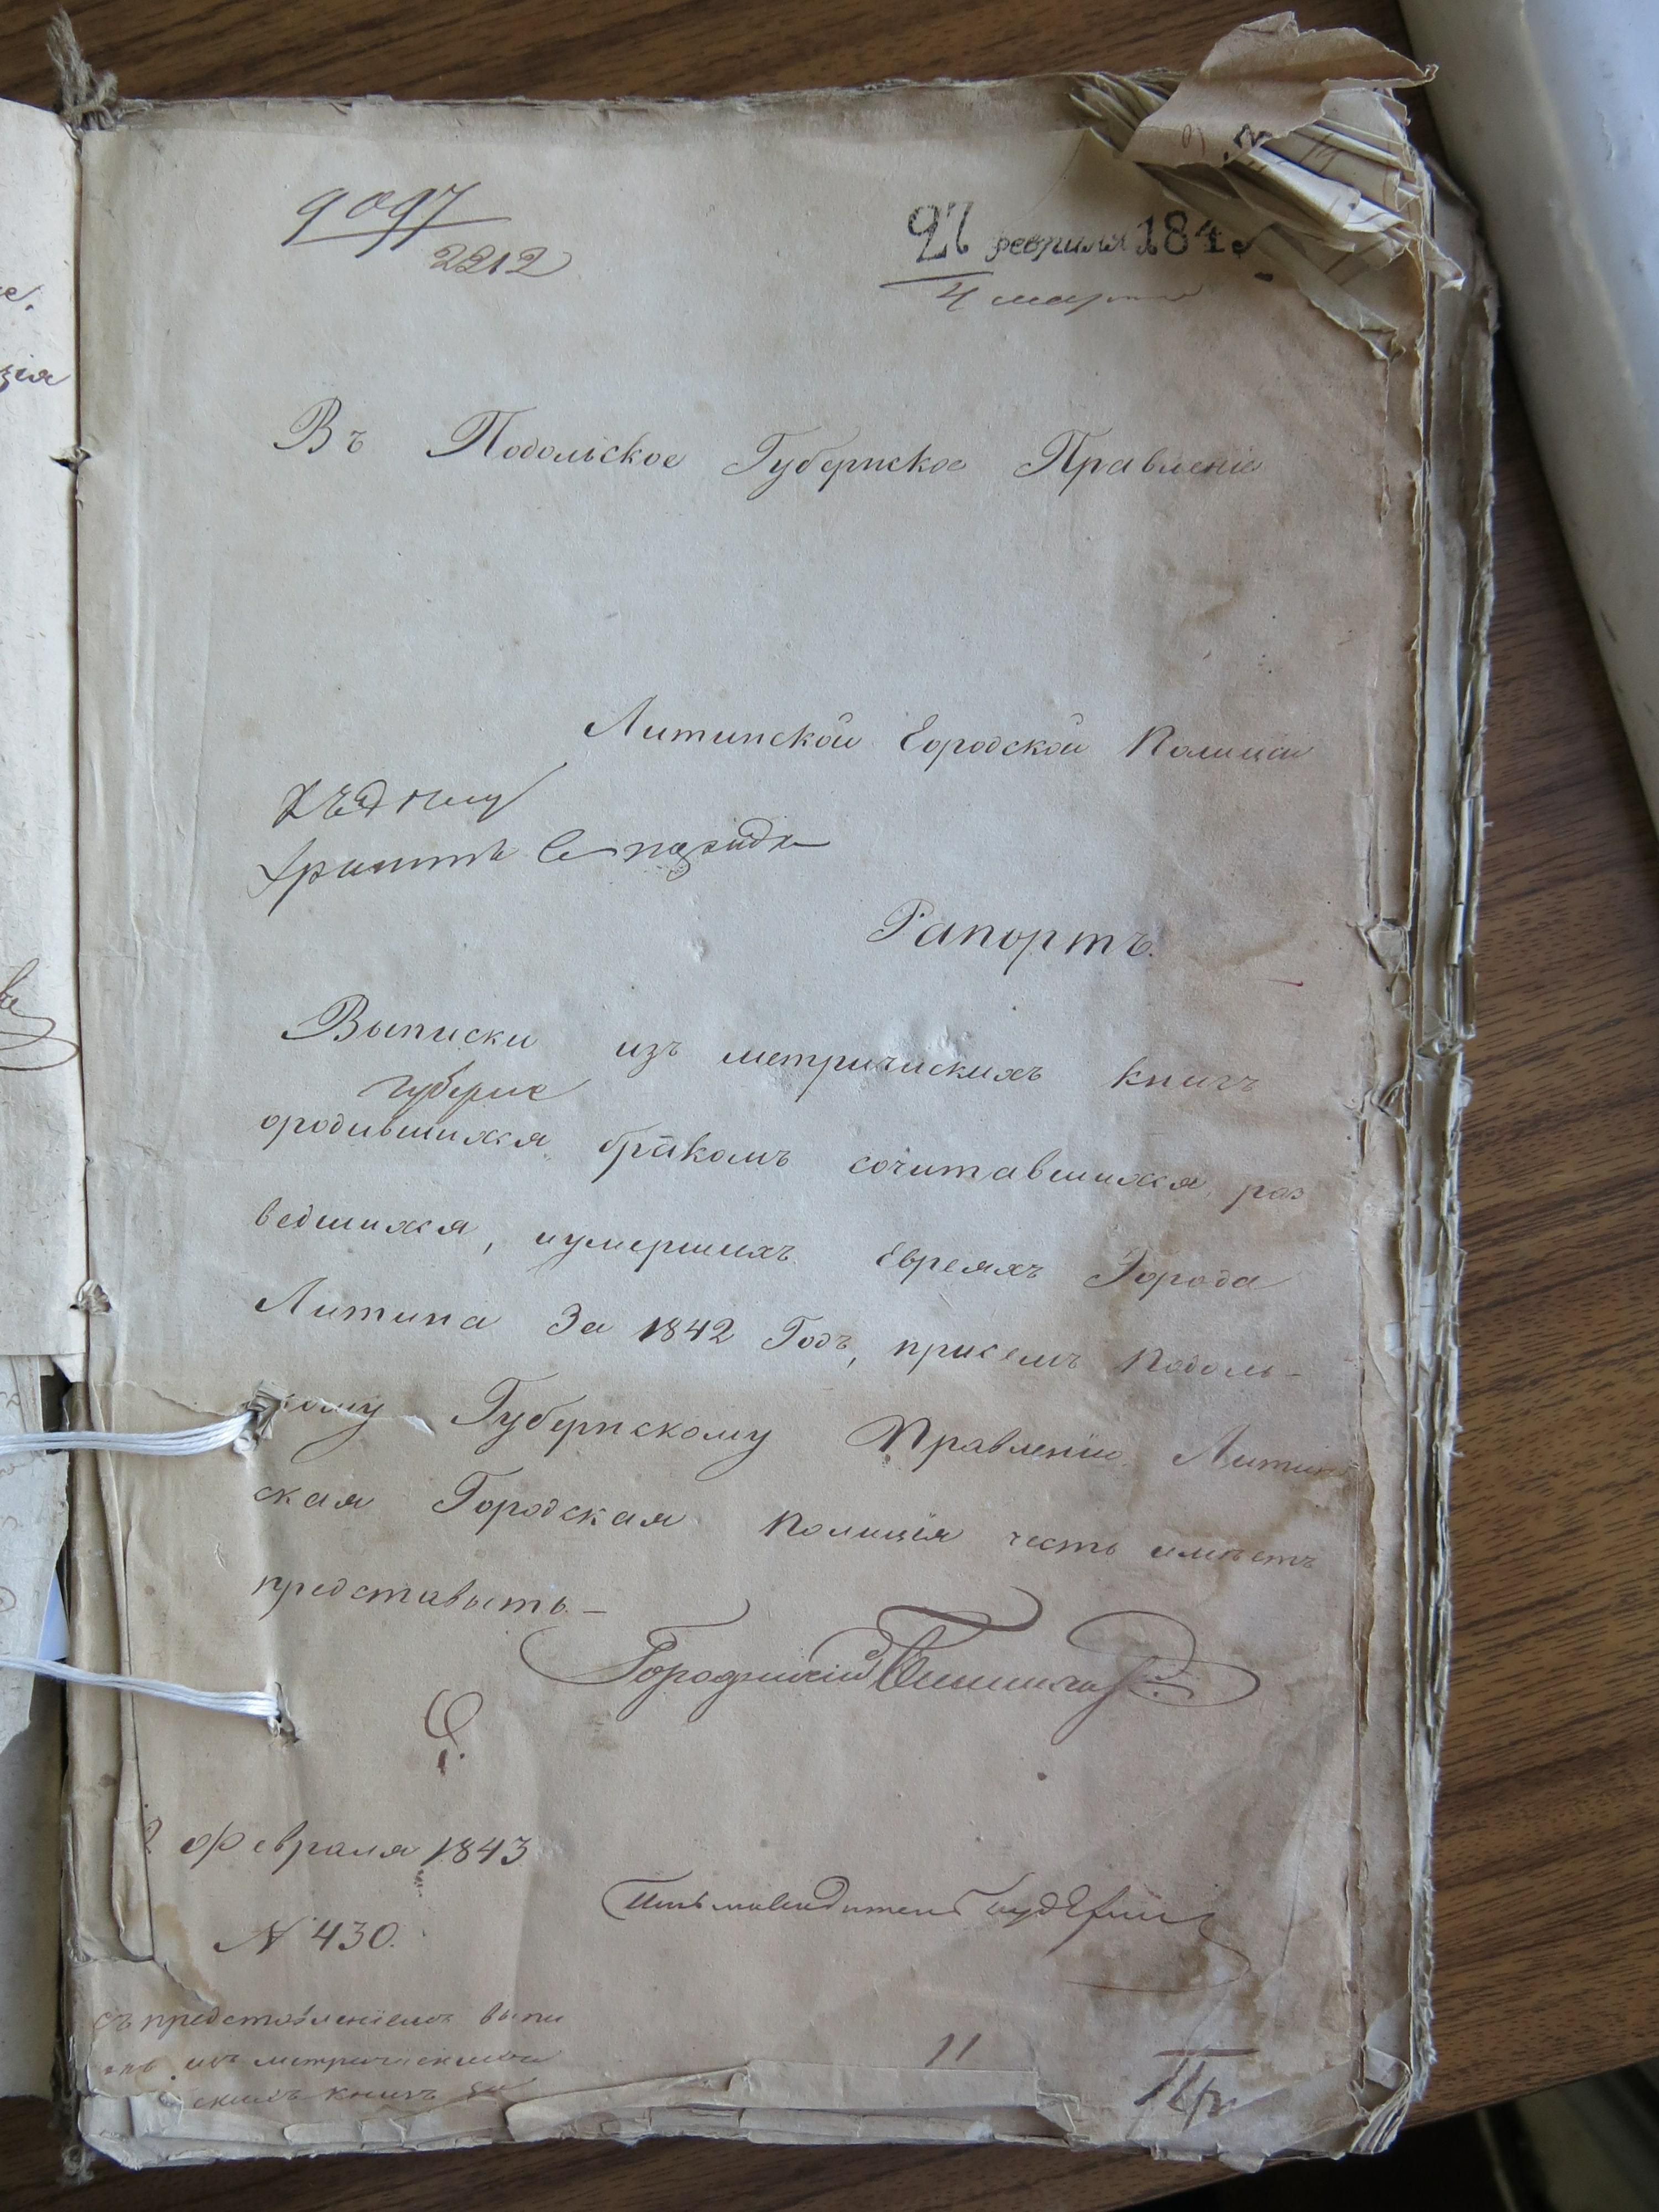 9097
2212
27 февраля 184
4 марта
Въ Подольское Губернское Правленіе
Литинской Городской Полиціи
Рапортъ.
Выписки изъ метрическихъ книгъ
ородившихся, бракомъ сочитавшихся, раз
ведшихся, иумершихъ Евреяхъ Города
Литина За 1842 Годъ, присемъ Подоль-
скому Губернскому Правленію Литин
ская Городская Полиція честь имѣетъ
представить. –
Городничій
Февраля 1843
N 430.
Письмоводитель
съ представленіемъ выпи
изъ метрическихъ
книгъ за
11